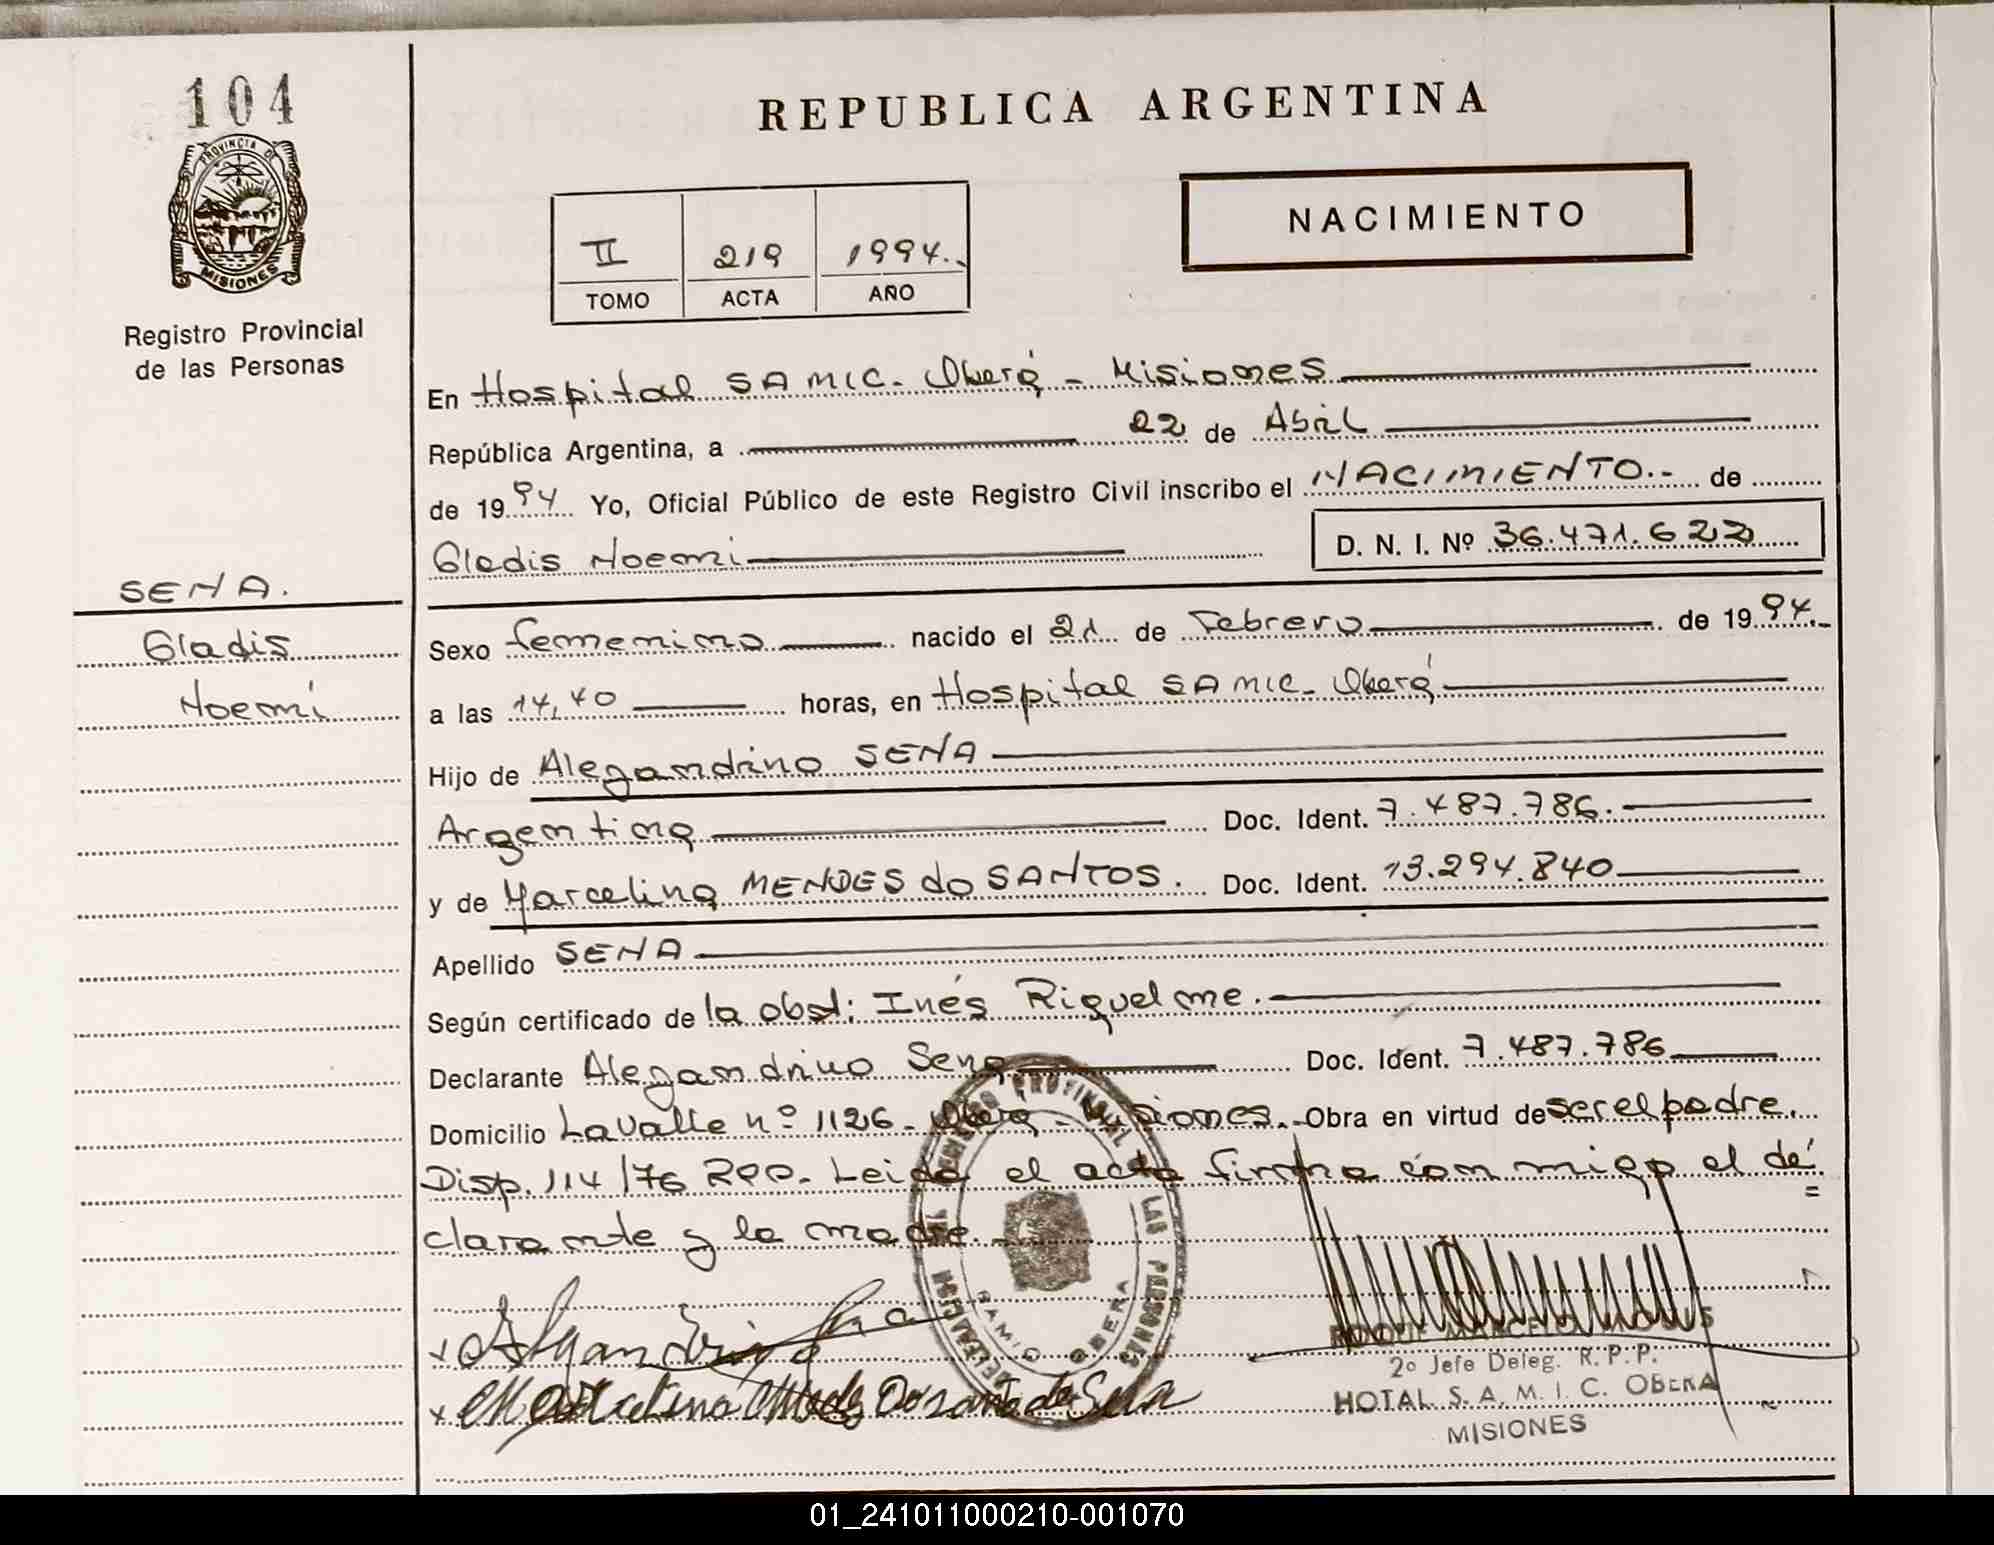 104
PROVINCIA DE
MISIONES
Registro Provincial
de las Personas
REPUBLICA ARGENTINA
NACIMIENTO
II 219 1994.-
TOMO ACTA AÑO
En Hospital SAMIC- Oberá - Misiones
República Argentina, a 22 de Abril
de 1994 Yo, Oficial Público de este Registro Civil inscribo el NACIMIENTO.- de
Gladis Noemi D. N. I. Nº 36.471.622
SENA.
Gladis
Noemí
Sexo femenino nacido el 21 de Febrero de 1994.-
a las 14,40 horas, en Hospital SAMIC- Oberá
Hijo de Alegandrino SENA
Argentina Doc. Ident. 7.487.786.
y de Marcelina MENDES do SANTOS. Doc. Ident. 13.294.840
Apellido SENA
Según certificado de la obst: Inés Riquelme.
Declarante Alegandrino Sena Doc. Ident. 7.487.786
Domicilio Lavalle nº 1126- Oberá - Misiones.- Obra en virtud de ser el padre.
Disp. 114/76 RPP- Leida el acta firma con migo el de=
clarante y la madre.-
REGISTRO PROVINCIAL DE LAS PERSONAS
DELEGACION
SAMIC OBERA
x Alejandrino Sena
x Marcelina Mendes Do Santo de Sena
ROQUE MARCELO
2º Jefe Deleg. R. P. P.
HOTAL S. A. M. I. C. OBERA
MISIONES
01_241011000210-001070